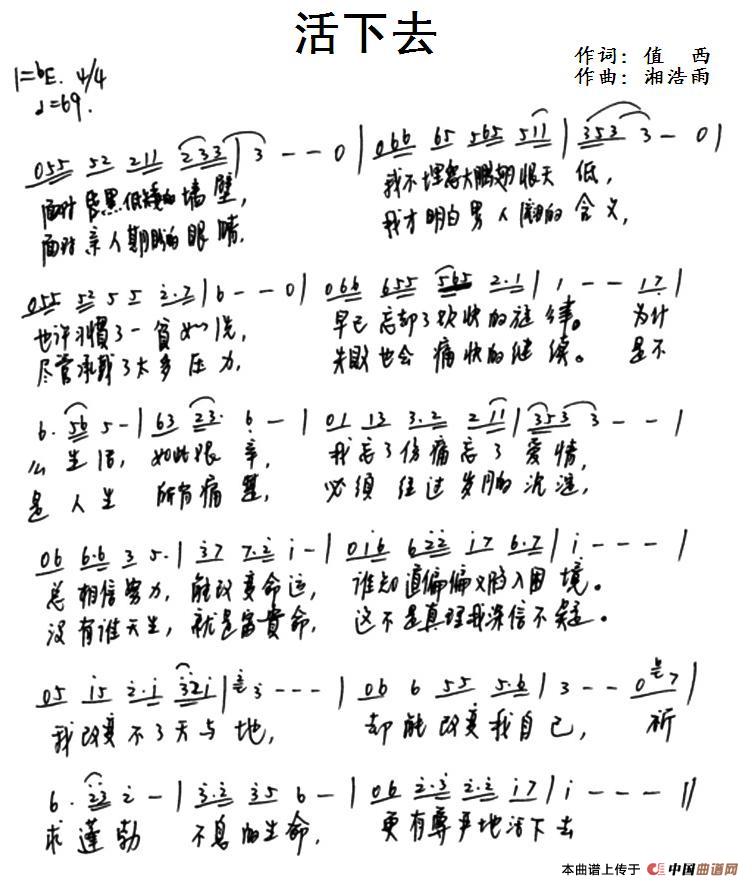 活下去
作词：值 西
作曲：湘浩雨
1=bE. 4/4
♩=69.
055 52 211 233 | 3 - - 0 | 066 65 565 511 | 353 3 - 0 |
面对 黑 低矮的墙壁， 我不埋怨大鹏翅恨天低，
面对亲人期盼的眼睛， 我才明白男人 的含义，
055 52 5 5 2.7 | 6 - - 0 | 066 655 565 2.1 | 1 - - 17 |
也许习惯了一贫如洗， 早已忘却了欢快的旋律。 为什
尽管承载了太多压力， 失败也会痛快的继续。 是不
6. 56 5 - | 63 23. 6 - | 01 13 3.2 2 11 | 353 3 - - |
么生活，如此艰辛， 我忘了伤痛忘了爱情，
是人生 所有痛楚， 必须经过岁月的沉淀，
06 6.6 3 5. | 37 7.2 i - | 0i6 622 i7 6.7 | i - - - |
总相信努力，能改变命运， 谁知道偏偏又陷入困境。
没有谁天生，就是富贵命， 这不是真理我深信不疑。
05 i5 2.i 32i | 3 - - - | 06 6 55 5.6 | 3 - - 07 |
我改变不了天与地， 却能改变我自己， 祈
6. 23 2 - | 3.2 35 6 - | 06 2.3 2.2 i7 | i - - - ||
求蓬勃 不息的生命， 更有尊严地活下去
本曲谱上传于 中国曲谱网